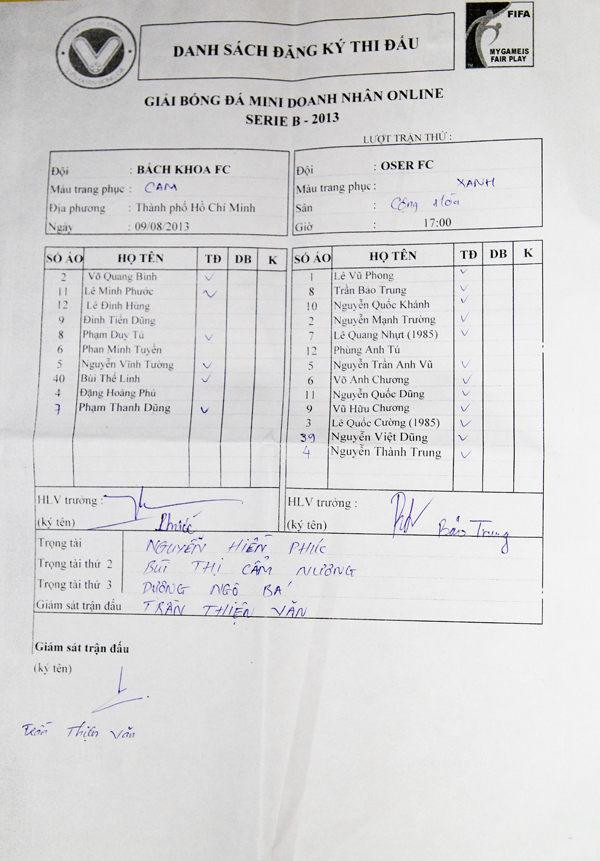 FIFA
MYGAMEIS
FAIR PLAY
DANH SÁCH ĐĂNG KÝ THI ĐẤU
GIẢI BÓNG ĐÁ MINI DOANH NHÂN ONLINE
SERIE B - 2013
LƯỢT TRẬN THỨ :
Đội : BÁCH KHOA FC
Màu trang phục : CAM
Địa phương : Thành phố Hồ Chí Minh
Ngày : 09/08/2013
Đội : OSER FC
Màu trang phục : XANH
Sân : Cộng Hòa
Giờ : 17:00
SỐ ÁO HỌ TÊN TĐ DB K
2 Võ Quang Bình ✓
11 Lê Minh Phước ✓
12 Lê Đình Hùng
9 Đinh Tiến Dũng
8 Phạm Duy Tú ✓
6 Phan Minh Tuyển
5 Nguyễn Vĩnh Tường ✓
40 Bùi Thế Linh ✓
4 Đặng Hoàng Phú
7 Phạm Thanh Dũng ✓
SỐ ÁO HỌ TÊN TĐ DB K
1 Lê Vũ Phong ✓
8 Trần Bảo Trung ✓
10 Nguyễn Quốc Khánh ✓
2 Nguyễn Mạnh Trường ✓
7 Lê Quang Nhựt (1985) ✓
12 Phùng Anh Tú
5 Nguyễn Trần Anh Vũ ✓
6 Võ Anh Chương ✓
11 Nguyễn Quốc Dũng ✓
9 Vũ Hữu Chương ✓
3 Lê Quốc Cường (1985) ✓
39 Nguyễn Việt Dũng ✓
4 Nguyễn Thành Trung ✓
HLV trưởng :
(ký tên) Phước
HLV trưởng :
(ký tên) Bảo Trung
Trọng tài NGUYỄN HIỀN PHÚC
Trọng tài thứ 2 BÙI THỊ CẨM NƯƠNG
Trọng tài thứ 3 DƯƠNG NGÔ BÁ
Giám sát trận đấu TRẦN THIỆN VĂN
Giám sát trận đấu
(ký tên)
Trần Thiện Văn